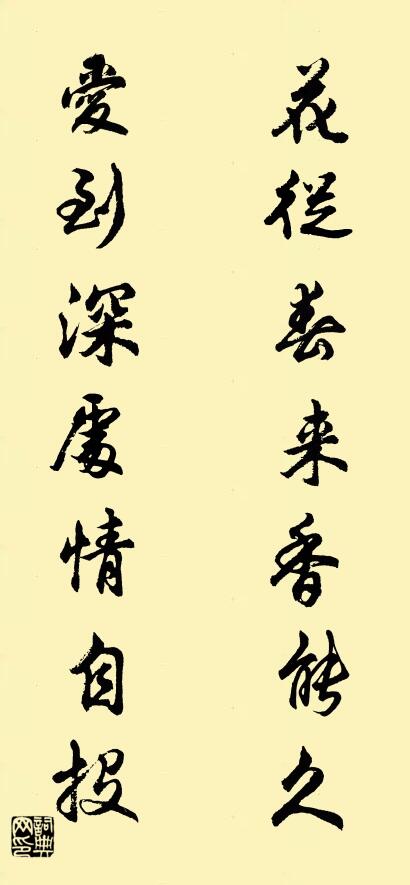 花從春来香能久
愛到深處情自投
詞典网印